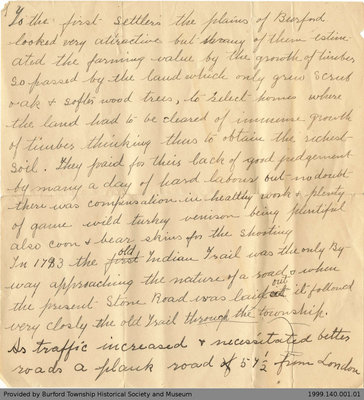 To the first settlers the plains of Burford
looked very attractive but many of them estim-
ated the farming value by the growth of timber
so passed by the land which only grew scrub
oak & softer wood trees, to select homes where
the land had to be cleared of immense growth
of timber thinking thus to obtain the richest
soil. They paid for their lack of good judgement
by many a day of hard labour but no doubt
there was compensation in healthy work & plenty
of game wild turkey venison being plentiful
also coon & bear skins for the shooting
In 1793 the old Indian Trail was the only By-
way approaching the nature of a road & when
the present Stone Road was laid out it followed
very closely the old Trail through the township.
As traffic increased & necessitated better
roads a plank road of 57½ from London
Provided by Burford Township Historical Society and Museum
1999.140.001.01